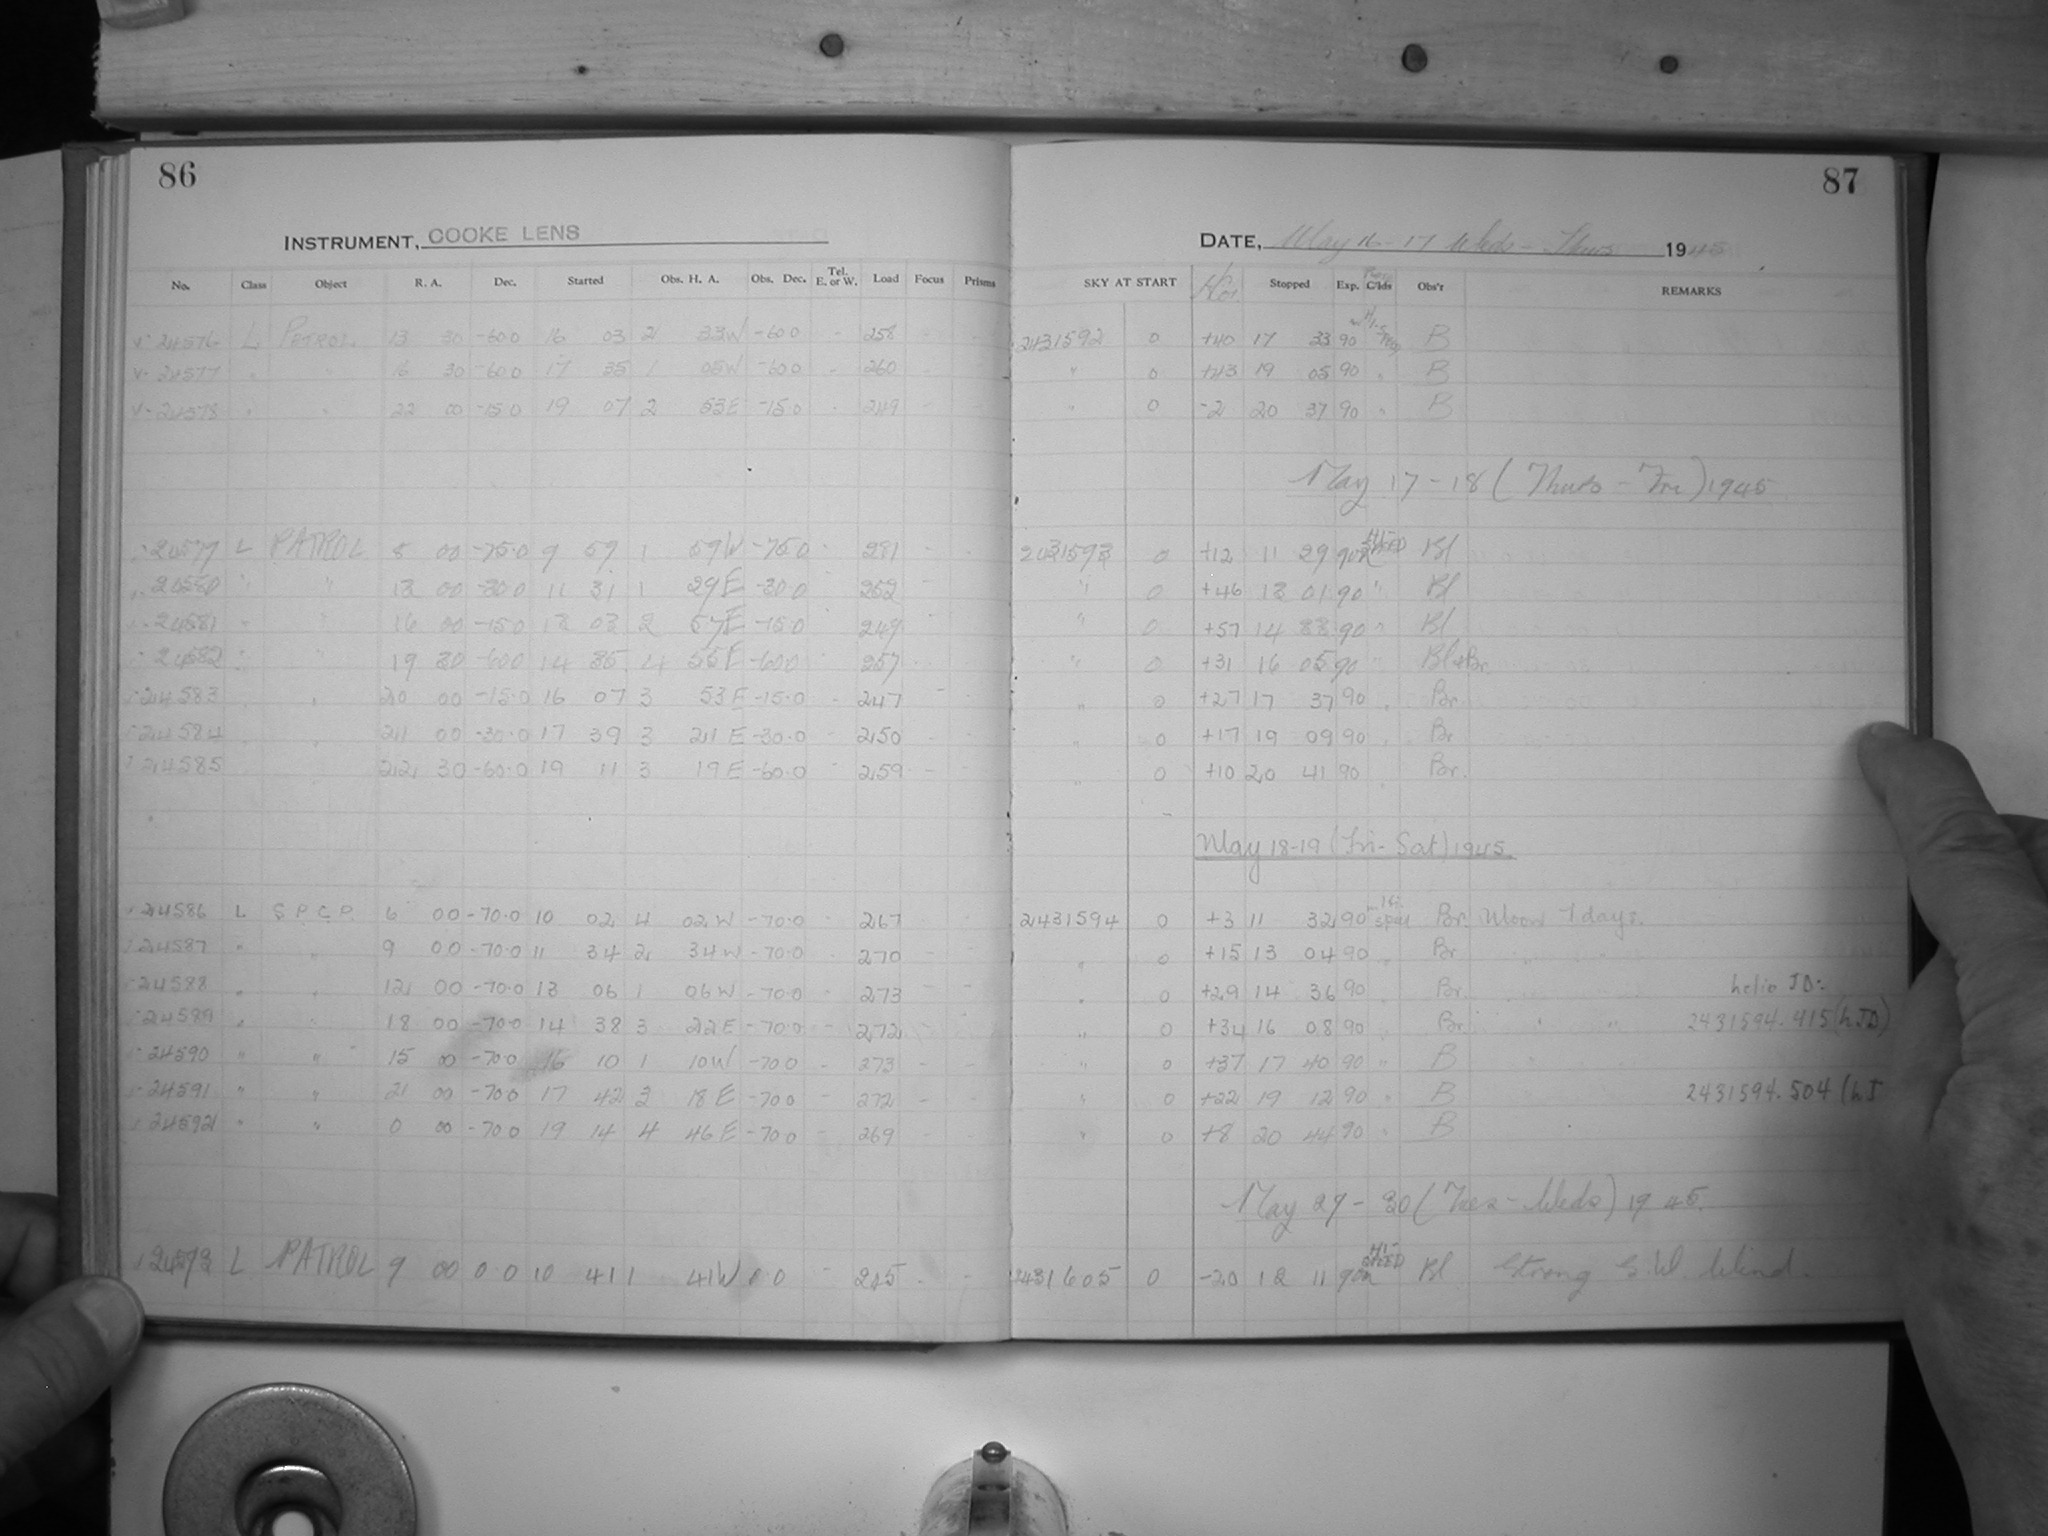 86
INSTRUMENT, COOKE LENS
No. Class Object R. A. Dec. Started Obs. H. A. Obs. Dec. Tel. E. or W. Load Focus Prisms
24576 L PATROL 13 30 -60.0 16 03 2 33W -60.0 - 258
24577 " " 16 30 -60.0 17 35 1 05W -60.0 - 260
24578 " " 22 00 -15.0 19 07 2 53E -15.0 - 249
L PATROL 5 00 -75.0 9 59 1 59W -75.0 - 281 - -
24580 " " 13 00 -30.0 11 31 1 29E -30.0 252 -
24581 " " 16 00 -15.0 13 03 2 57E -15.0 249 -
24582 " " 19 30 -60.0 14 35 4 55E -60.0 257
24583 " 20 00 -15.0 16 07 3 53E -15.0 - 247 - -
24584 " 21 00 -30.0 17 39 3 21E -30.0 - 250 - -
24585 22 30 -60.0 19 11 3 19E -60.0 - 259 - -
24586 L S.P.C.P. 6 00 -70.0 10 02 4 02W -70.0 267 - -
24587 " " 9 00 -70.0 11 34 2 34W -70.0 - 270 - -
24588 " " 12 00 -70.0 13 06 1 06W -70.0 - 273 - -
24589 " " 18 00 -70.0 14 38 3 22E -70.0 - 272 - -
24590 " " 15 00 -70.0 16 10 1 10W -70.0 - 273 - -
24591 " " 21 00 -70.0 17 42 3 18E -70.0 - 272 - -
24592 " " 0 00 -70.0 19 14 4 46E -70.0 - 269 - -
L PATROL 9 00 0 0 10 41 1 41W 0 0 - 245 - -
87
DATE, May 16-17 Weds-Thurs 1945
SKY AT START Hor Stopped Exp. C'lds Obs'r REMARKS
2431592 0 +40 17 33 90 B
" 0 +43 19 05 90 " B
" 0 -2 20 37 90 " B
May 17-18 (Thurs-Fri) 1945
2431593 0 +12 11 29 90 Bl
" 0 +46 13 01 90 " Bl
" 0 +57 14 33 90 " Bl
" 0 +31 16 05 90 " Bl+Br.
" 0 +27 17 37 90 " Br.
" 0 +17 19 09 90 " Br.
" 0 +10 20 41 90 Br.
May 18-19 (Fri-Sat) 1945.
2431594 0 +3 11 32 90 Br. Moon 7 days.
" 0 +15 13 04 90 " Br. " "
" 0 +29 14 36 90 " Br. helio JD:
" 0 +34 16 08 90 " Br. " " 2431594.415 (hJD)
" 0 +37 17 40 90 " B
" 0 +22 19 12 90 " B 2431594.504 (hJ
" 0 +8 20 44 90 " B
May 29-30 (Tues-Weds) 1945.
2431605 0 -20 12 11 90 HI-SPEED Bl Strong S.W. Wind.